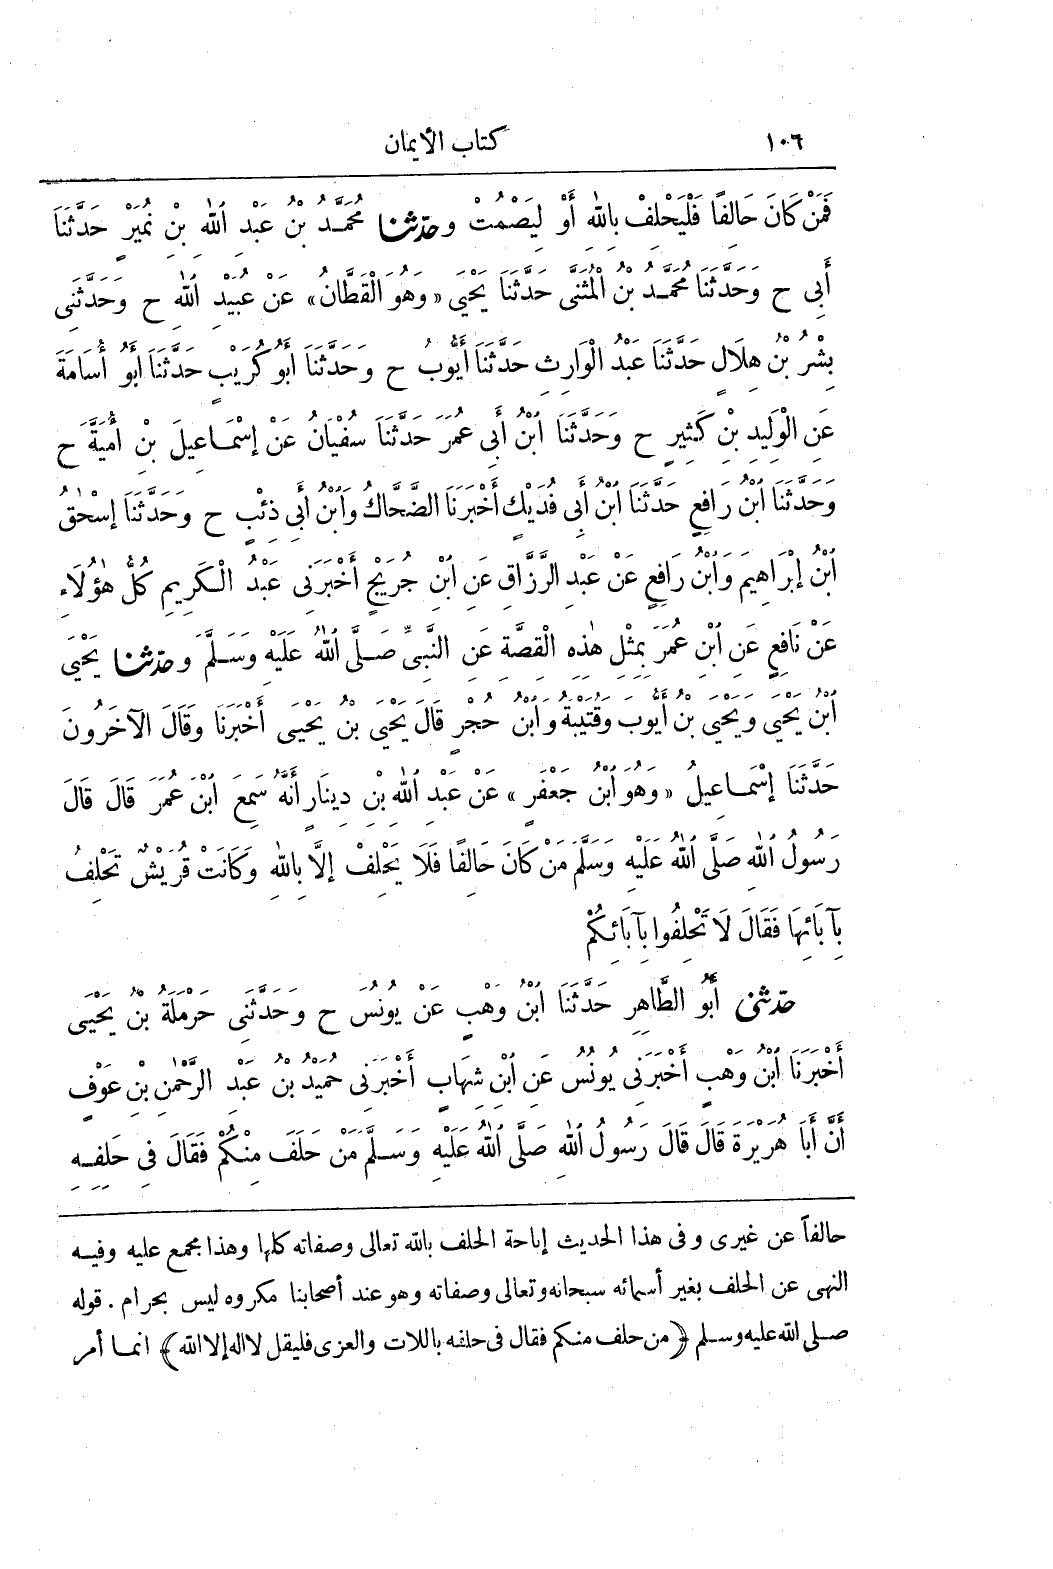 ١٠٦ كتاب الأيمان
فَمَنْ كَانَ حَالِفًا فَلْيَحْلِفْ بِاللّٰهِ أَوْ لِيَصْمُتْ و حدثنا مُحَمَّدُ بْنُ عَبْدِ اللّٰهِ بْنِ نُمَيْرٍ حَدَّثَنَا
أَبِى ح وَحَدَّثَنَا مُحَمَّدُ بْنُ الْمُثَنَّى حَدَّثَنَا يَحْيَى «وَهُوَ الْقَطَّانُ» عَنْ عُبَيْدِ اللّٰهِ ح وَحَدَّثَنِى
بِشْرُ بْنُ هِلَالٍ حَدَّثَنَا عَبْدُ الْوَارِثِ حَدَّثَنَا أَيُّوبُ ح وَحَدَّثَنَا أَبُو كُرَيْبٍ حَدَّثَنَا أَبُو أُسَامَةَ
عَنِ الْوَلِيدِ بْنِ كَثِيرٍ ح وَحَدَّثَنَا ابْنُ أَبِى عُمَرَ حَدَّثَنَا سُفْيَانُ عَنْ إِسْمَاعِيلَ بْنِ أُمَيَّةَ ح
وَحَدَّثَنَا ابْنُ رَافِعٍ حَدَّثَنَا ابْنُ أَبِى فُدَيْكٍ أَخْبَرَنَا الضَّحَّاكُ وَابْنُ أَبِى ذِئْبٍ ح وَحَدَّثَنَا إِسْحٰقُ
ابْنُ إِبْرَاهِيمَ وَابْنُ رَافِعٍ عَنْ عَبْدِ الرَّزَّاقِ عَنِ ابْنِ جُرَيْجٍ أَخْبَرَنِى عَبْدُ الْكَرِيمِ كُلُّ هٰؤُلَاءِ
عَنْ نَافِعٍ عَنِ ابْنِ عُمَرَ بِمِثْلِ هٰذِهِ الْقِصَّةِ عَنِ النَّبِىِّ صَلَّى اللّٰهُ عَلَيْهِ وَسَلَّمَ و حدثنا يَحْيَى
ابْنُ يَحْيَى وَيَحْيَى بْنُ أَيُّوبَ وَقُتَيْبَةُ وَابْنُ حُجْرٍ قَالَ يَحْيَى بْنُ يَحْيَى أَخْبَرَنَا وَقَالَ الْآخَرُونَ
حَدَّثَنَا إِسْمَاعِيلُ «وَهُوَ ابْنُ جَعْفَرٍ» عَنْ عَبْدِ اللّٰهِ بْنِ دِينَارٍ أَنَّهُ سَمِعَ ابْنَ عُمَرَ قَالَ قَالَ
رَسُولُ اللّٰهِ صَلَّى اللّٰهُ عَلَيْهِ وَسَلَّمَ مَنْ كَانَ حَالِفًا فَلَا يَحْلِفْ إِلَّا بِاللّٰهِ وَكَانَتْ قُرَيْشٌ تَحْلِفُ
بِآبَائِهَا فَقَالَ لَا تَحْلِفُوا بِآبَائِكُمْ
حدثنى أَبُو الطَّاهِرِ حَدَّثَنَا ابْنُ وَهْبٍ عَنْ يُونُسَ ح وَحَدَّثَنِى حَرْمَلَةُ بْنُ يَحْيَى
أَخْبَرَنَا ابْنُ وَهْبٍ أَخْبَرَنِى يُونُسُ عَنِ ابْنِ شِهَابٍ أَخْبَرَنِى حُمَيْدُ بْنُ عَبْدِ الرَّحْمٰنِ بْنِ عَوْفٍ
أَنَّ أَبَا هُرَيْرَةَ قَالَ قَالَ رَسُولُ اللّٰهِ صَلَّى اللّٰهُ عَلَيْهِ وَسَلَّمَ مَنْ حَلَفَ مِنْكُمْ فَقَالَ فِى حَلِفِهِ
حالفاً عن غيرى وفى هذا الحديث إباحة الحلف بالله تعالى وصفاته كلها وهذا مجمع عليه وفيه
النهى عن الحلف بغير أسمائه سبحانه وتعالى وصفاته وهو عند أصحابنا مكروه ليس بحرام . قوله
صلى الله عليه وسلم ﴿من حلف منكم فقال فى حلفه باللات والعزى فليقل لا اله إلا الله﴾ انما أمر